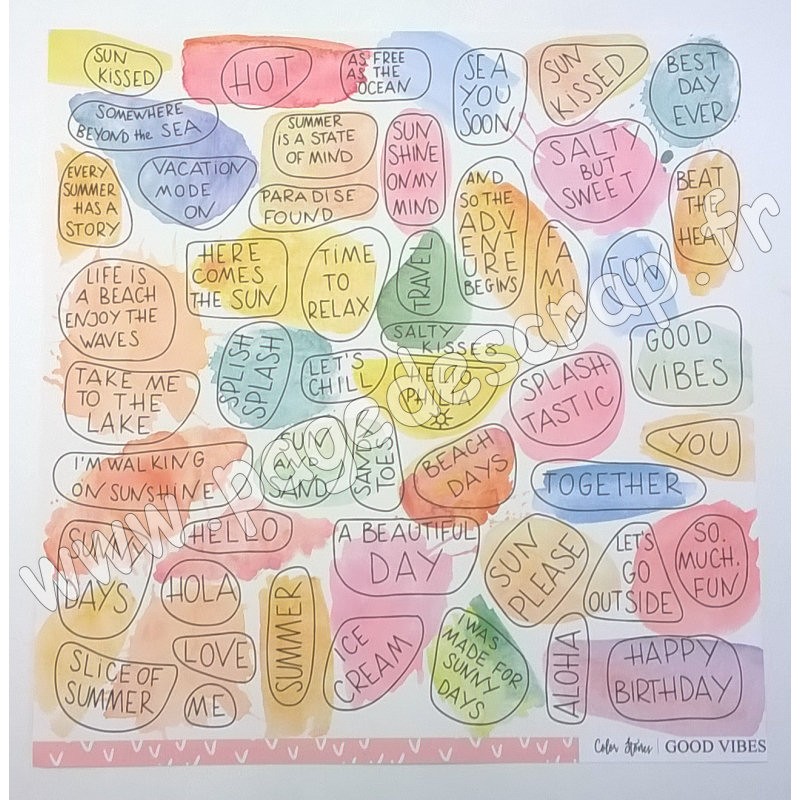 SUN
KISSED
HOT
AS FREE
AS THE
OCEAN
SEA
YOU
SOON
SUN
KISSED
BEST
DAY
EVER
SOMEWHERE
BEYOND the SEA
SUMMER
IS A STATE
OF MIND
SUN
SHINE
ON MY
MIND
SALTY
BUT
SWEET
EVERY
SUMMER
HAS A
STORY
VACATION
MODE
ON
PARADISE
FOUND
AND
SO THE
ADV
ENT
URE
BEGINS
BEAT
THE
HEAT
LIFE IS
A BEACH
ENJOY THE
WAVES
HERE
COMES
THE SUN
TIME
TO
RELAX
TRAVEL
FUN
SALTY
KISSES
GOOD
VIBES
TAKE ME
TO THE
LAKE
SPLISH
SPLASH
LET'S
CHILL
HELLO
SPLASH
TASTIC
I'M WALKING
ON SUNSHINE
SUN
AND
SAND
SANDY
TOES
BEACH
DAYS
YOU
TOGETHER
SUNNY
DAYS
HELLO
A BEAUTIFUL
DAY
SUN
PLEASE
LET'S
GO
OUTSIDE
SO.
MUCH.
FUN
HOLA
SUMMER
ICE
CREAM
I WAS
MADE FOR
SUNNY
DAYS
ALOHA
HAPPY
BIRTHDAY
LOVE
SLICE OF
SUMMER
ME
Color Stories | GOOD VIBES
www.pagedescrap.fr